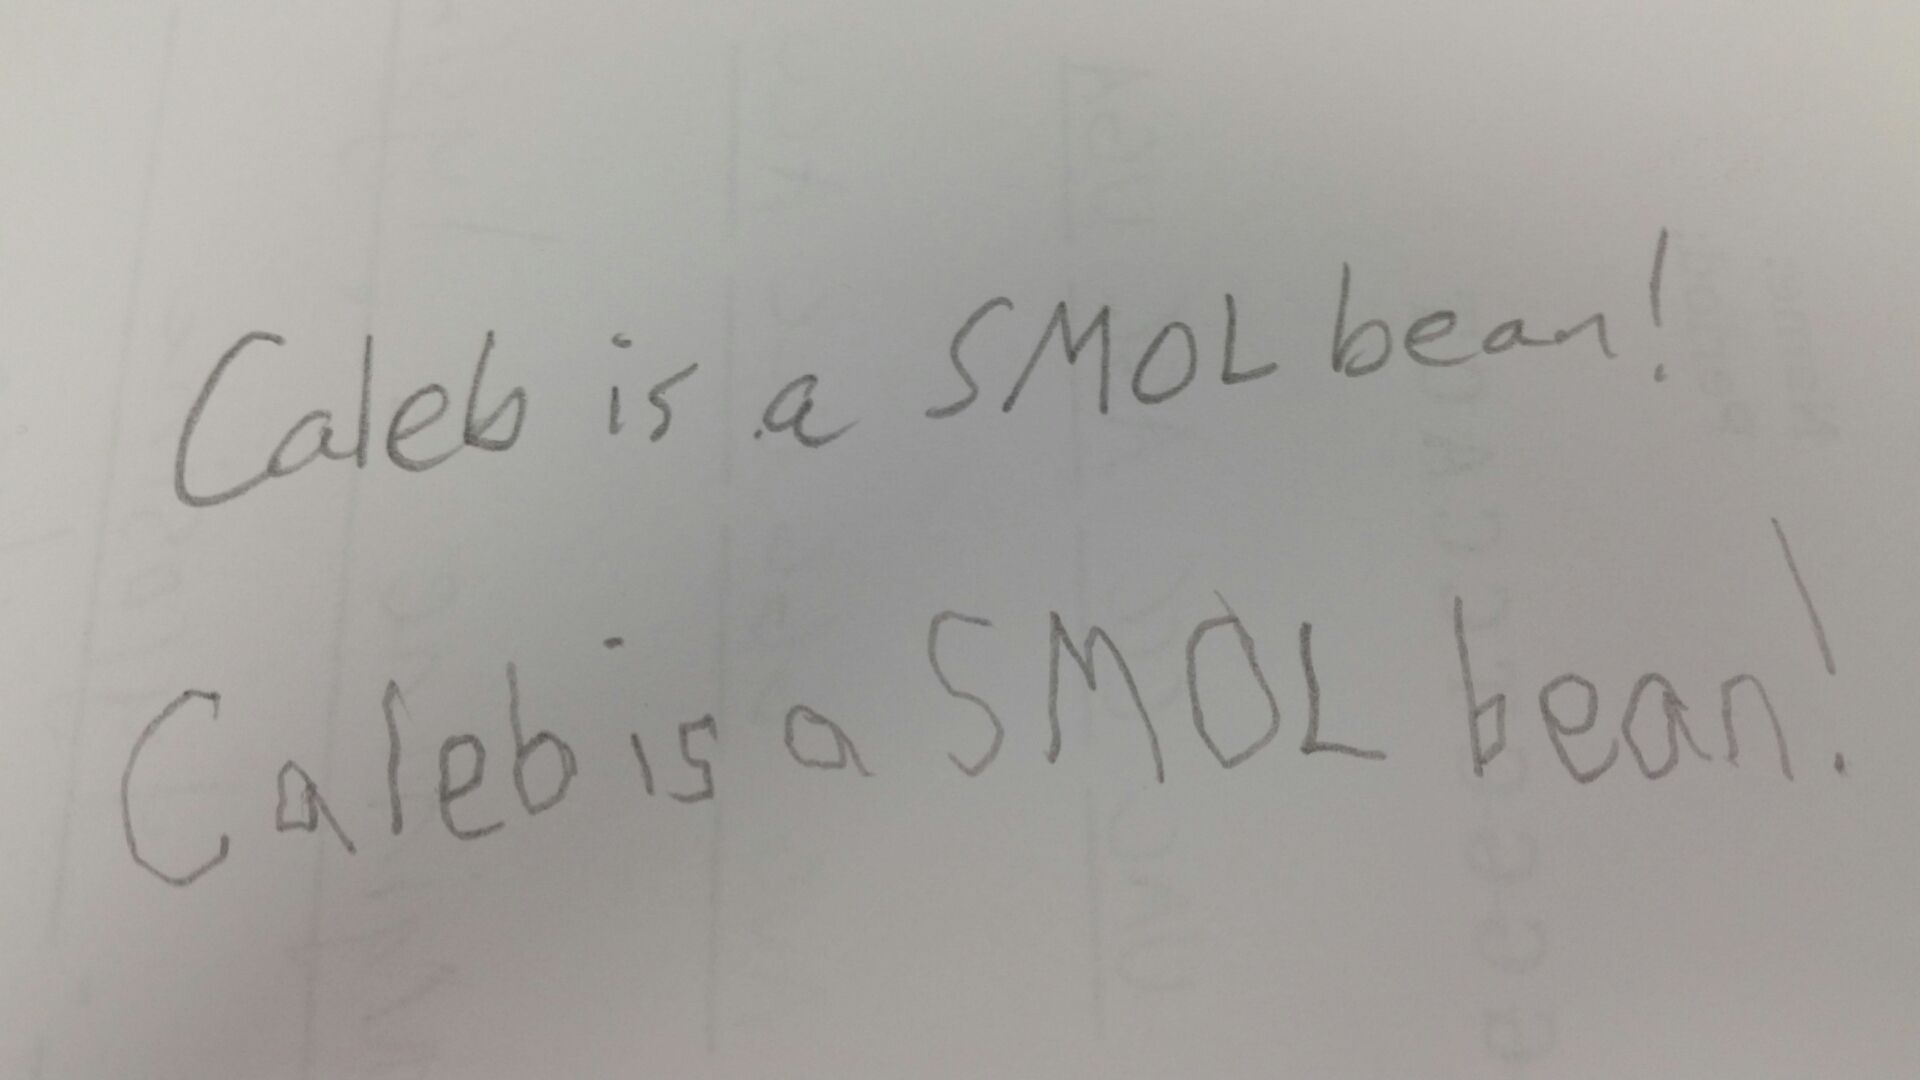 Caleb is a SMOL bean!
Caleb is a SMOL bean!